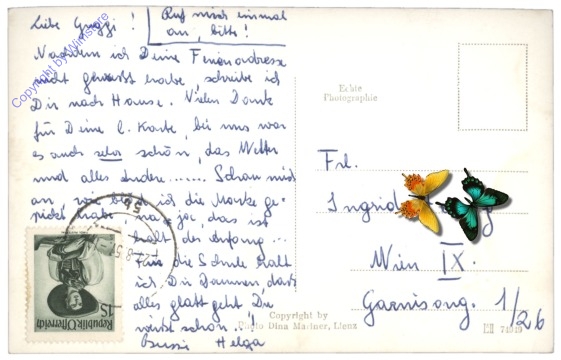 Liebe Guggi!
Ruf mich einmal
an, bitte!
Nachdem ich Deine Ferienadresse
nicht gewusst habe, schreibe ich
Dir nach Hause. Vielen Dank
für Deine l. Karte, bei uns war
es auch sehr schön, das Wetter
und alles andere....... Schau mich
an, wie ich die Marke ge-
pickt habe das ist
halt der Anfang...
Für die Schule halt
ich Dir Daumen, dass
alles glatt geht. Du
wirst schon!
Bussi Helga
Echte
Photographie
Frl.
Ingrid
Wien IX.
Garnisong. 1/26
Copyright by
Dina Mariner, Lienz
74919
Republik Österreich
1S
Copyright by Wimstore